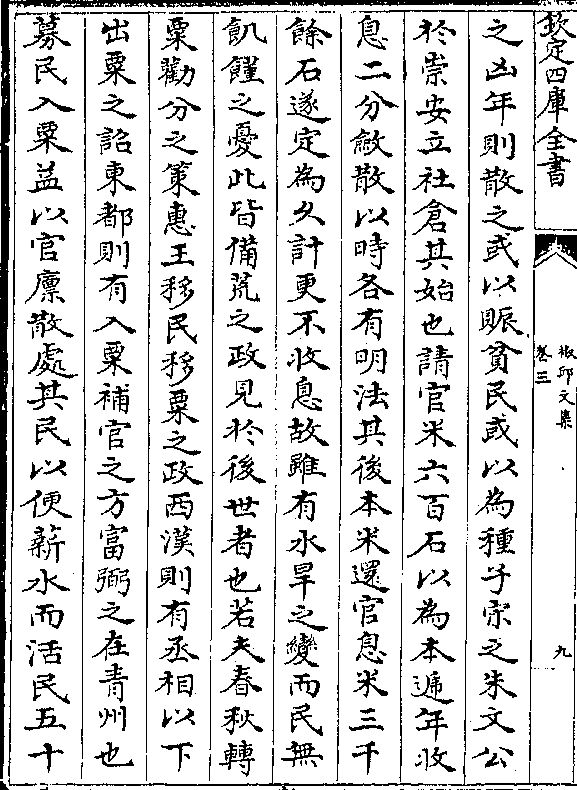 欽定四庫全書
椒邱文集
卷三
九
之凶年則散之或以賑貧民或以為種子宗之朱文公
於崇安立社倉其始也請官米六百石以為本遞年收
息二分斂散以時各有明法其後本米還官息米三千
餘石遂定為久計更不收息故雖有水旱之變而民無
飢饉之憂此皆備荒之政見於後世者也若夫春秋轉
粟勸分之策惠王移民移粟之政西漢則有丞相以下
出粟之詔東都則有入粟補官之方富弼之在青州也
募民入粟益以官廪散處其民以便薪水而活民五十